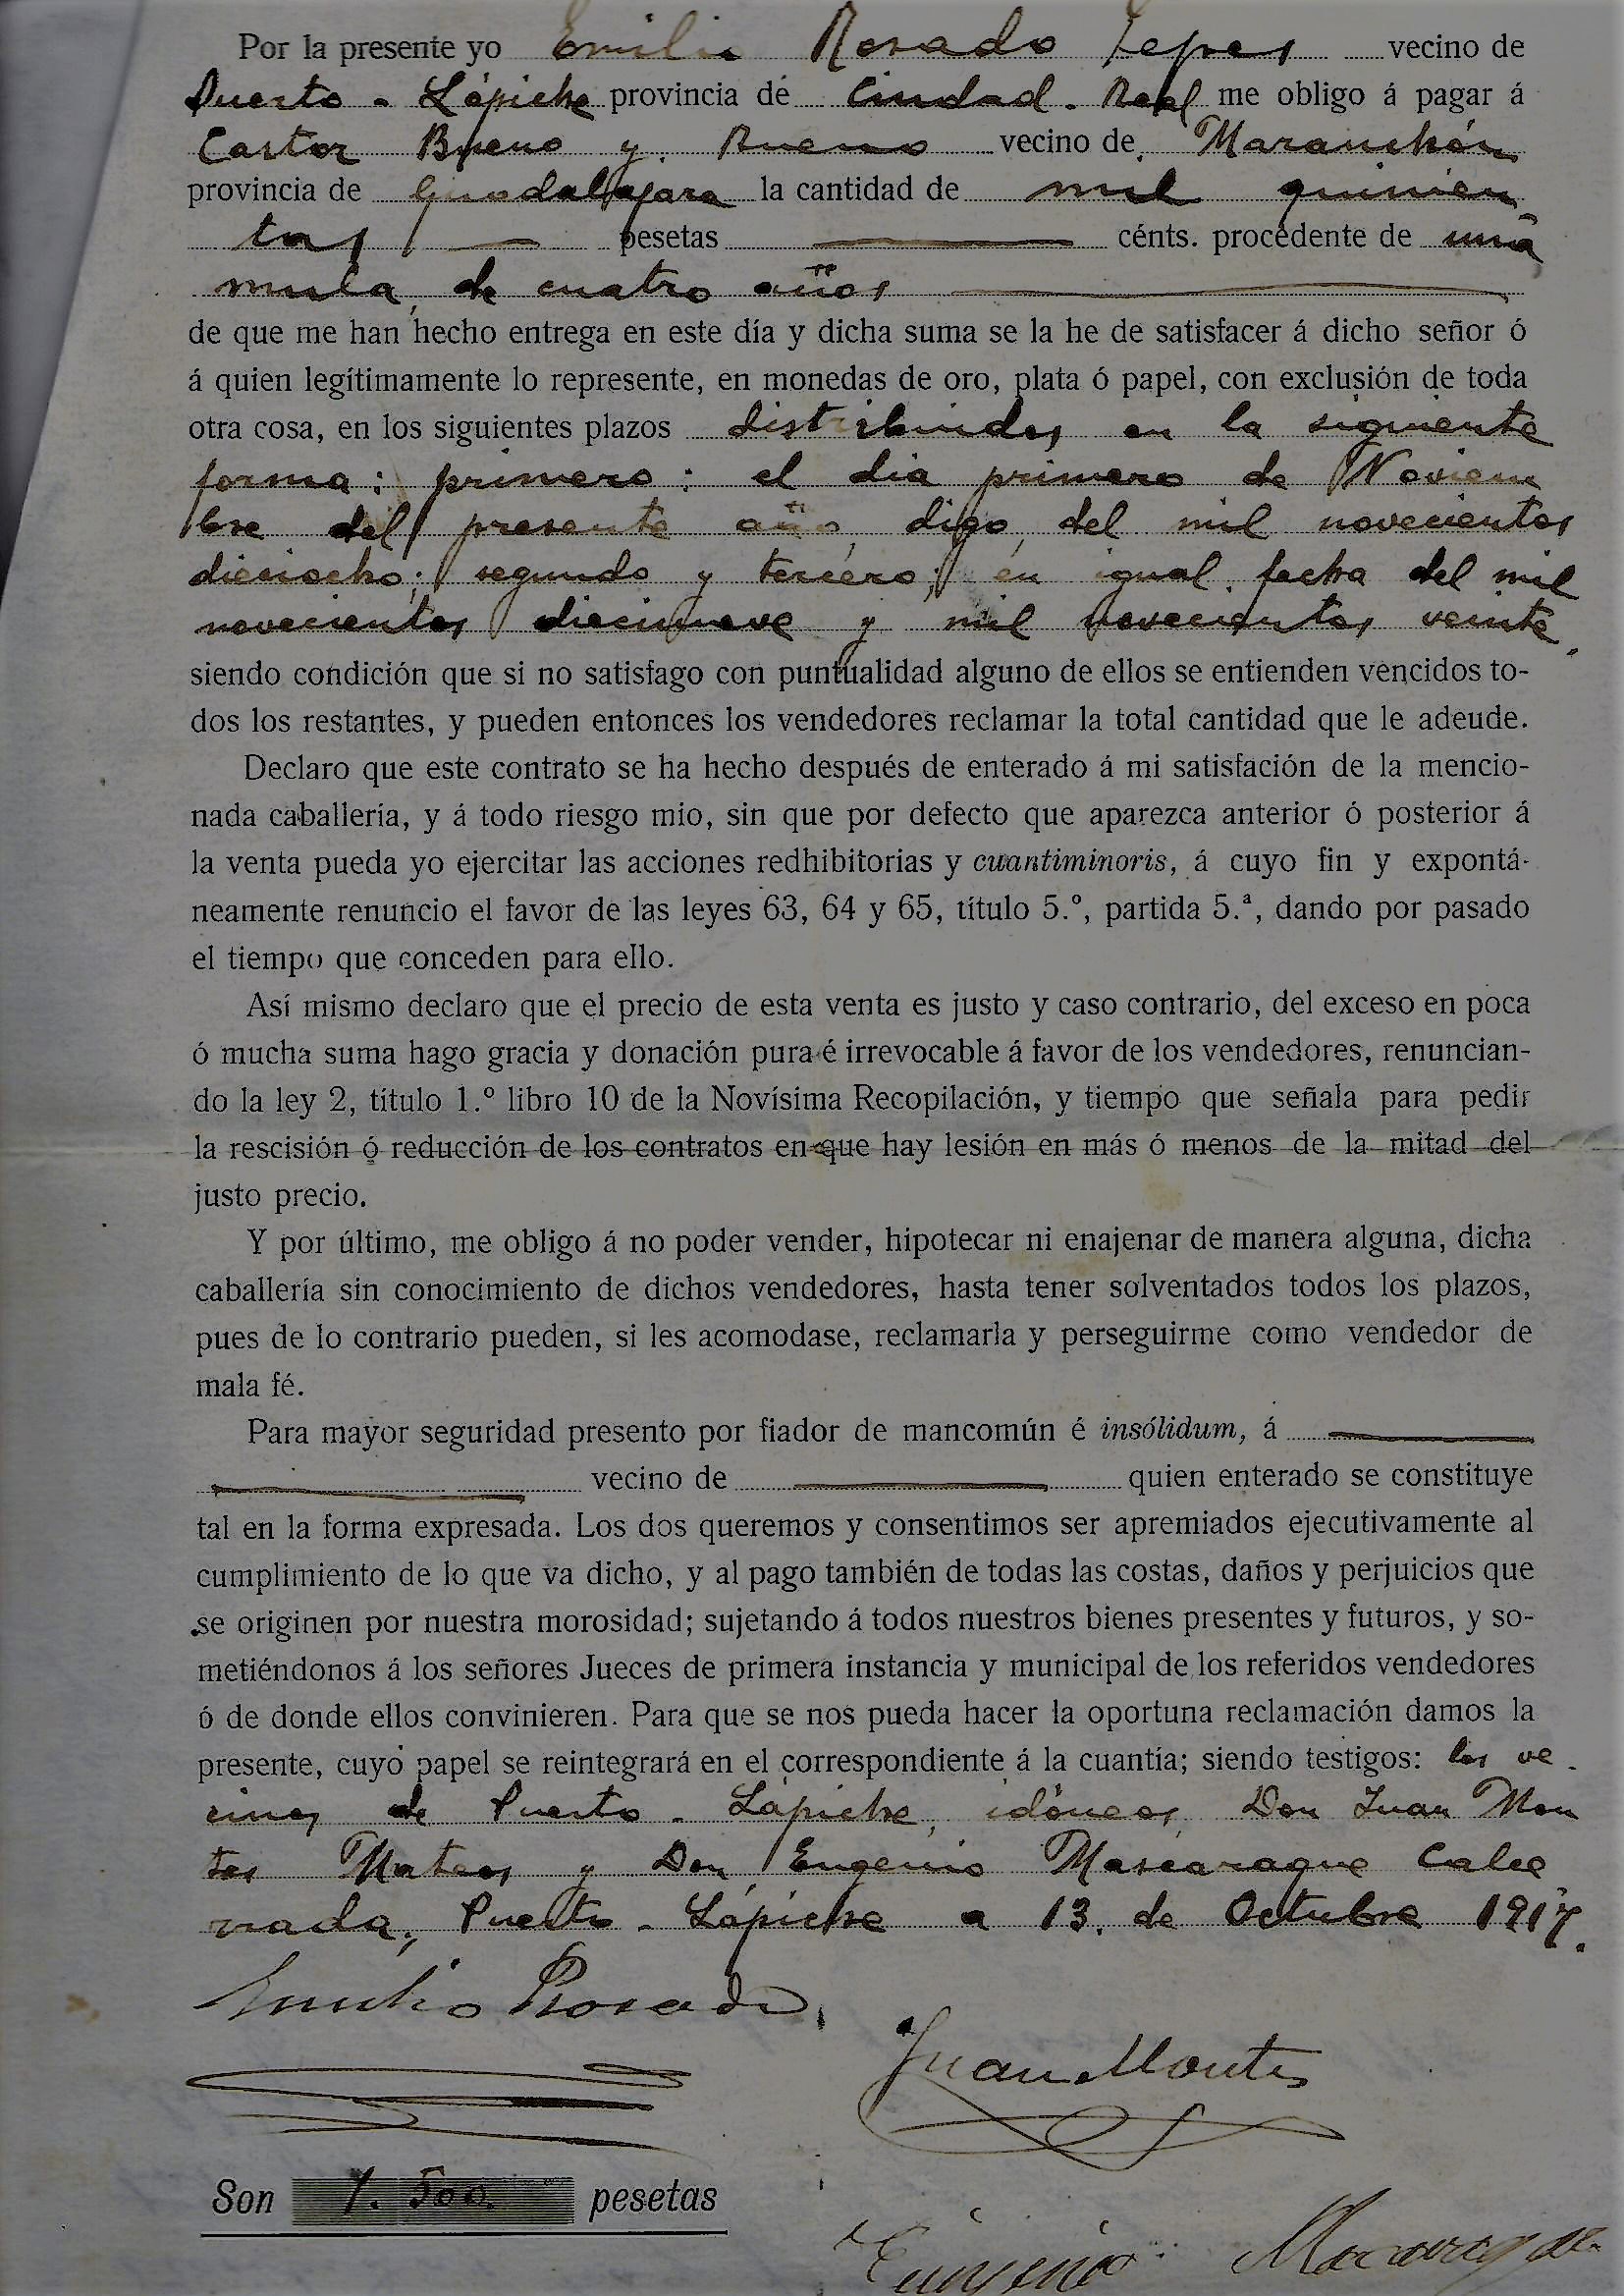 Por la presente yo Emilio Rosado Yepes vecino de
Puerto-Lápiche provincia de Ciudad-Real me obligo á pagar á
Castor Bueno y Bueno vecino de Maranchón
provincia de Guadalajara la cantidad de mil quinien
tas pesetas cénts. procedente de una
mula de cuatro años
de que me han hecho entrega en este día y dicha suma se la he de satisfacer á dicho señor ó
á quien legítimamente lo represente, en monedas de oro, plata ó papel, con exclusión de toda
otra cosa, en los siguientes plazos distribuidos en la siguiente
forma: primero: el dia primero de Noviem
bre del presente año, digo, del mil novecientos
dieciocho; segundo y tercero; en igual fecha del mil
novecientos diecinueve y mil novecientos veinte.
siendo condición que si no satisfago con puntualidad alguno de ellos se entienden vencidos to-
dos los restantes, y pueden entonces los vendedores reclamar la total cantidad que le adeude.
Declaro que este contrato se ha hecho después de enterado á mi satisfación de la mencio-
nada caballería, y á todo riesgo mio, sin que por defecto que aparezca anterior ó posterior á
la venta pueda yo ejercitar las acciones redhibitorias y cuantiminoris, á cuyo fin y expontá-
neamente renuncio el favor de las leyes 63, 64 y 65, título 5.º, partida 5.ª, dando por pasado
el tiempo que conceden para ello.
Así mismo declaro que el precio de esta venta es justo y caso contrario, del exceso en poca
ó mucha suma hago gracia y donación pura é irrevocable á favor de los vendedores, renuncian-
do la ley 2, título 1.º libro 10 de la Novísima Recopilación, y tiempo que señala para pedir
la rescisión ó reducción de los contratos en que hay lesión en más ó menos de la mitad del
justo precio.
Y por último, me obligo á no poder vender, hipotecar ni enajenar de manera alguna, dicha
caballería sin conocimiento de dichos vendedores, hasta tener solventados todos los plazos,
pues de lo contrario pueden, si les acomodase, reclamarla y perseguirme como vendedor de
mala fé.
Para mayor seguridad presento por fiador de mancomún é insólidum, á
vecino de quien enterado se constituye
tal en la forma expresada. Los dos queremos y consentimos ser apremiados ejecutivamente al
cumplimiento de lo que va dicho, y al pago también de todas las costas, daños y perjuicios que
se originen por nuestra morosidad; sujetando á todos nuestros bienes presentes y futuros, y so-
metiéndonos á los señores Jueces de primera instancia y municipal de los referidos vendedores
ó de donde ellos convinieren. Para que se nos pueda hacer la oportuna reclamación damos la
presente, cuyo papel se reintegrará en el correspondiente á la cuantía; siendo testigos: los ve-
cinos de Puerto-Lápiche, idóneos, Don Juan Mon
tes Mateos y Don Eugenio Mascaraque Calce
rrada, Puerto-Lápiche a 13, de Octubre 1917.
Emilio Rosado
Juan Montes
Son 1.500. pesetas
Eugenio Mascaraque